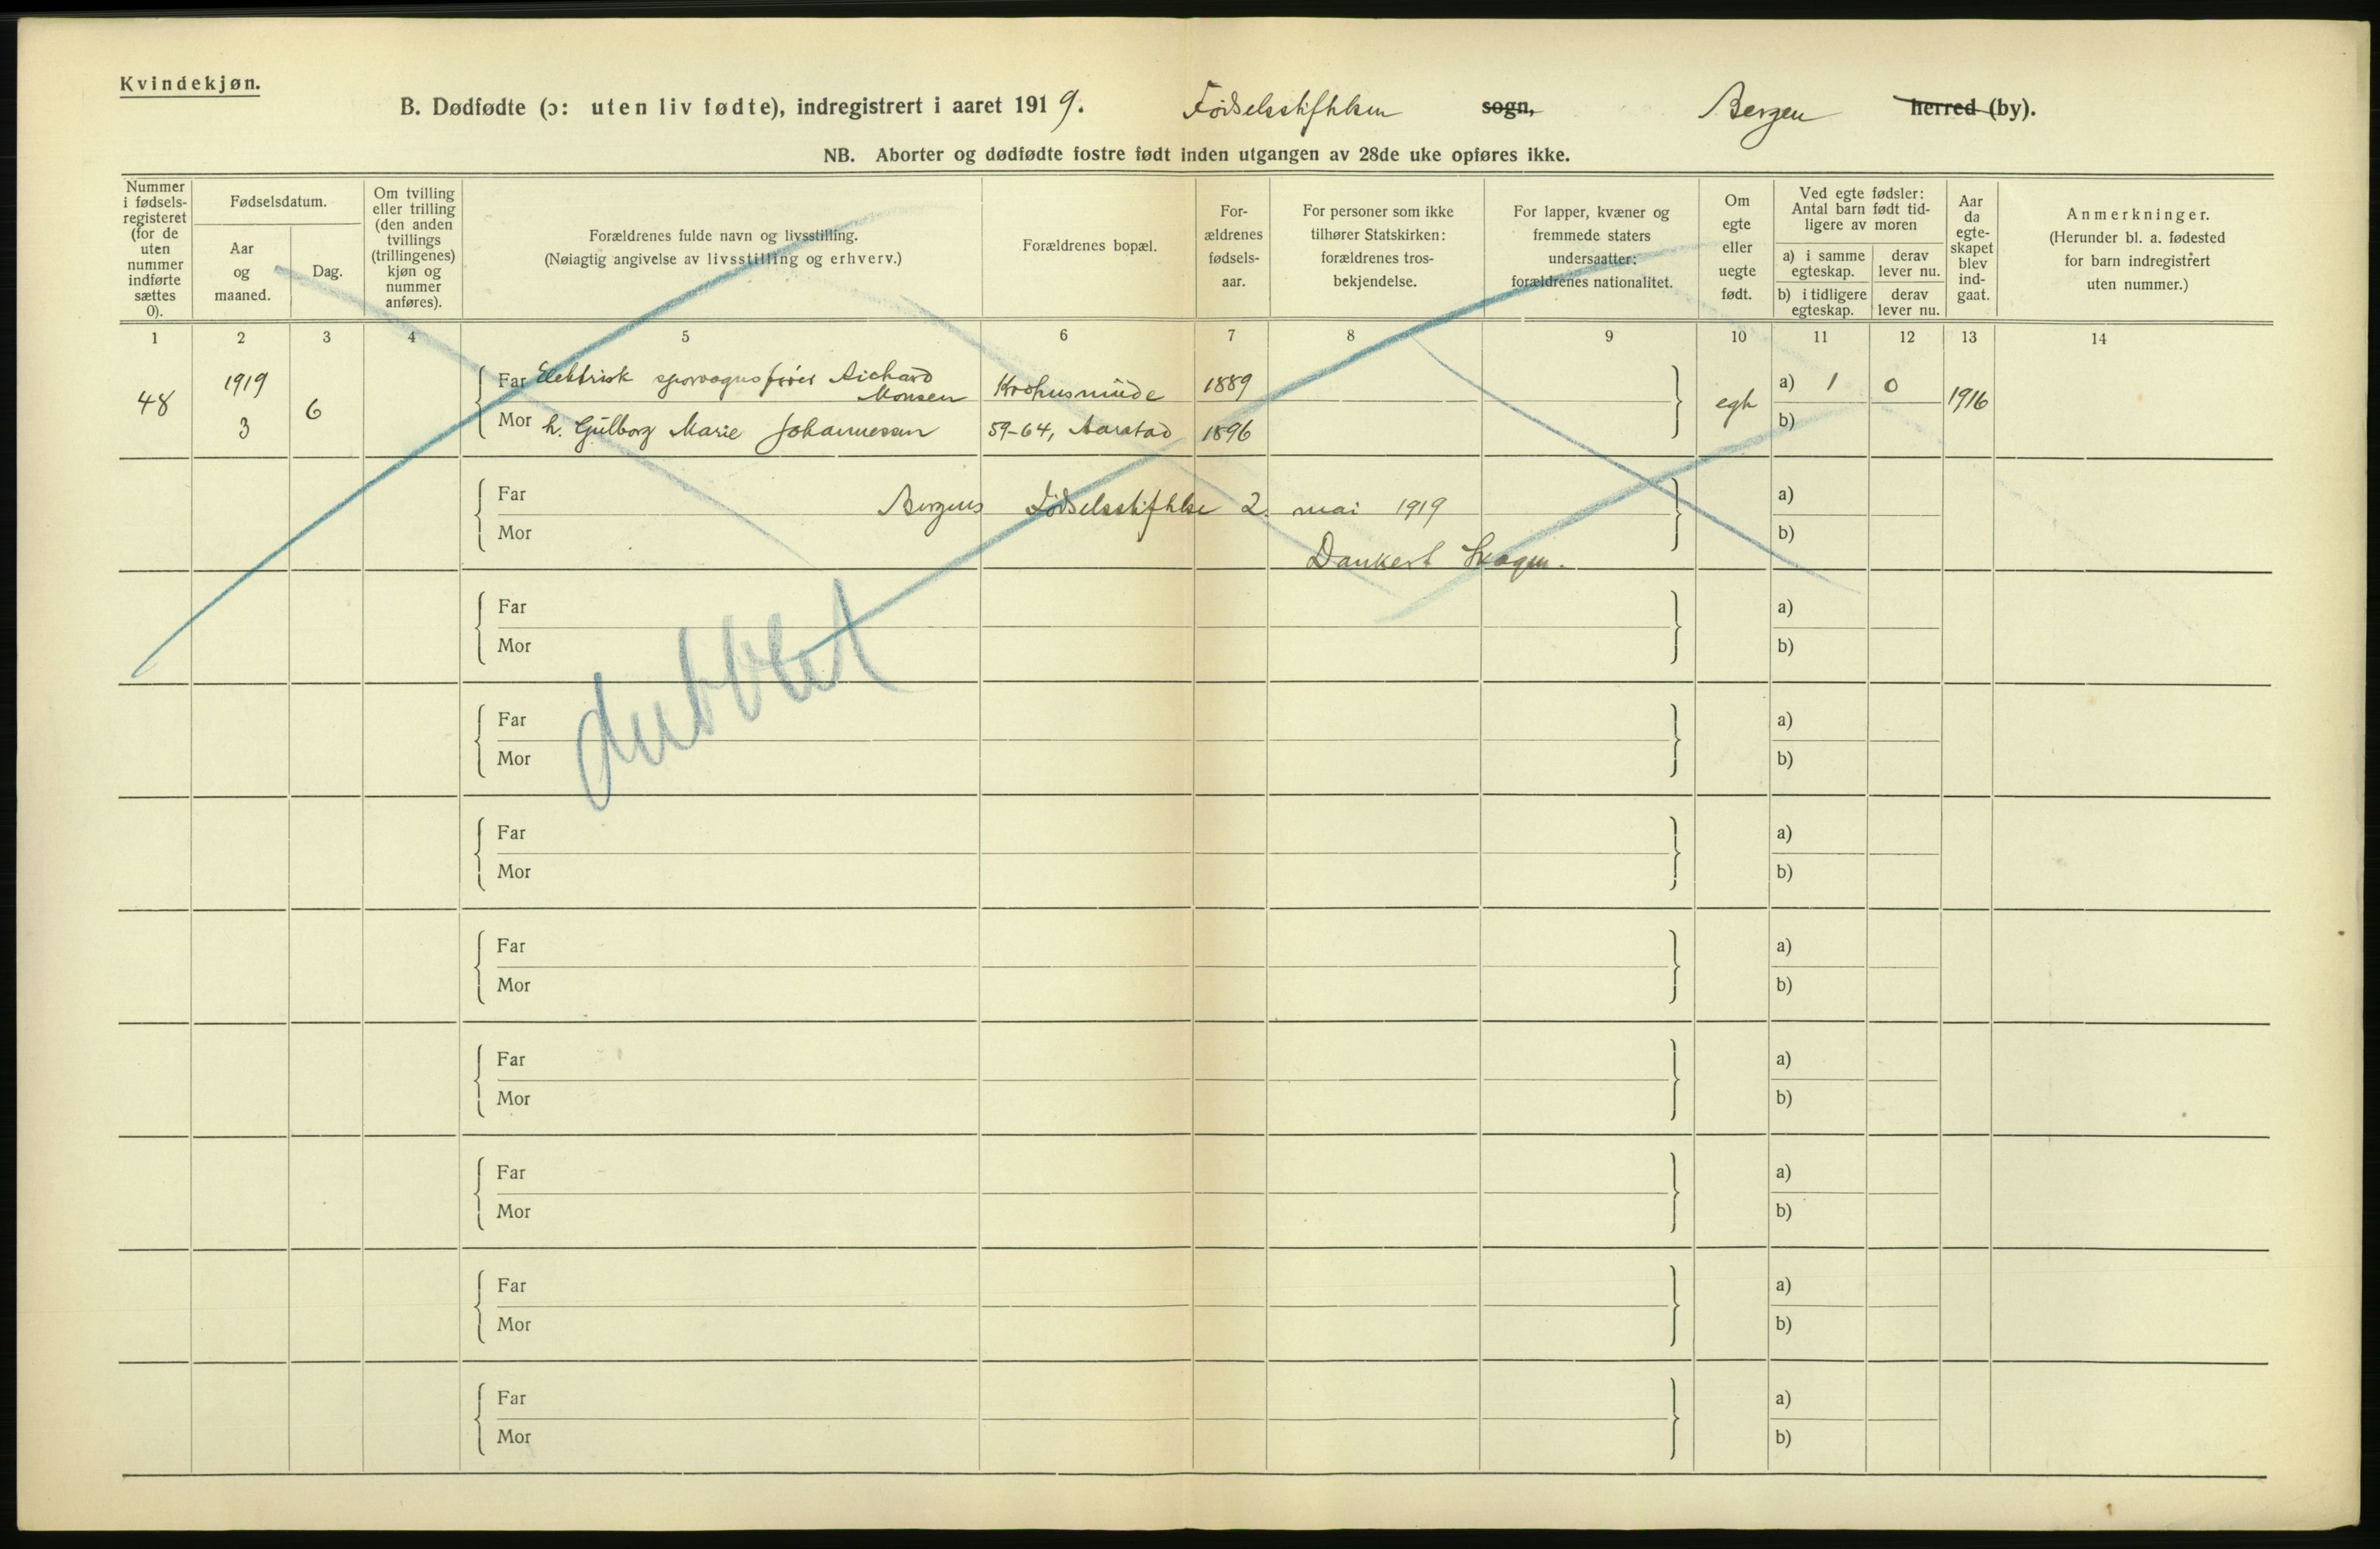 Kvindekjøn.
B. Dødfødte (ɔ: uten liv fødte), indregistrert i aaret 1919. Fødselsstiftelsen sogn, Bergen herred (by).
NB. Aborter og dødfødte fostre født inden utgangen av 28de uke opføres ikke.
Nummer i fødsels-registeret (for de uten nummer indførte sættes 0).
Fødselsdatum.
Aar og maaned.
Dag.
Om tvilling eller trilling (den anden tvillings (trillingenes) kjøn og nummer anføres).
Forældrenes fulde navn og livsstilling.
(Nøiagtig angivelse av livsstilling og erhverv.)
Forældrenes bopæl.
For-ældrenes fødsels-aar.
For personer som ikke tilhører Statskirken: forældrenes tros-bekjendelse.
For lapper, kvæner og fremmede staters undersaatter: forældrenes nationalitet.
Om egte eller uegte født.
Ved egte fødsler: Antal barn født tid-ligere av moren
a) i samme egteskap.
derav lever nu.
b) i tidligere egteskap.
derav lever nu.
Aar da egte-skapet blev ind-gaat.
Anmerkninger.
(Herunder bl. a. fødested for barn indregistrert uten nummer.)
1 2 3 4 5 6 7 8 9 10 11 12 13 14
48 1919 3 6
Far Elektrisk sporvognsfører Richard Monsen
1889
Mor h. Gulborg Marie Johannessen 59-64, Aarstad 1896
egte a) 1 0 1916
b)
Far
Mor
a)
b)
Bergens Fødselsstiftelse 2. mai 1919
Dankert Skagen.
Far
Mor
a)
b)
dubblet
Far
Mor
a)
b)
Far
Mor
a)
b)
Far
Mor
a)
b)
Far
Mor
a)
b)
Far
Mor
a)
b)
Far
Mor
a)
b)
Far
Mor
a)
b)